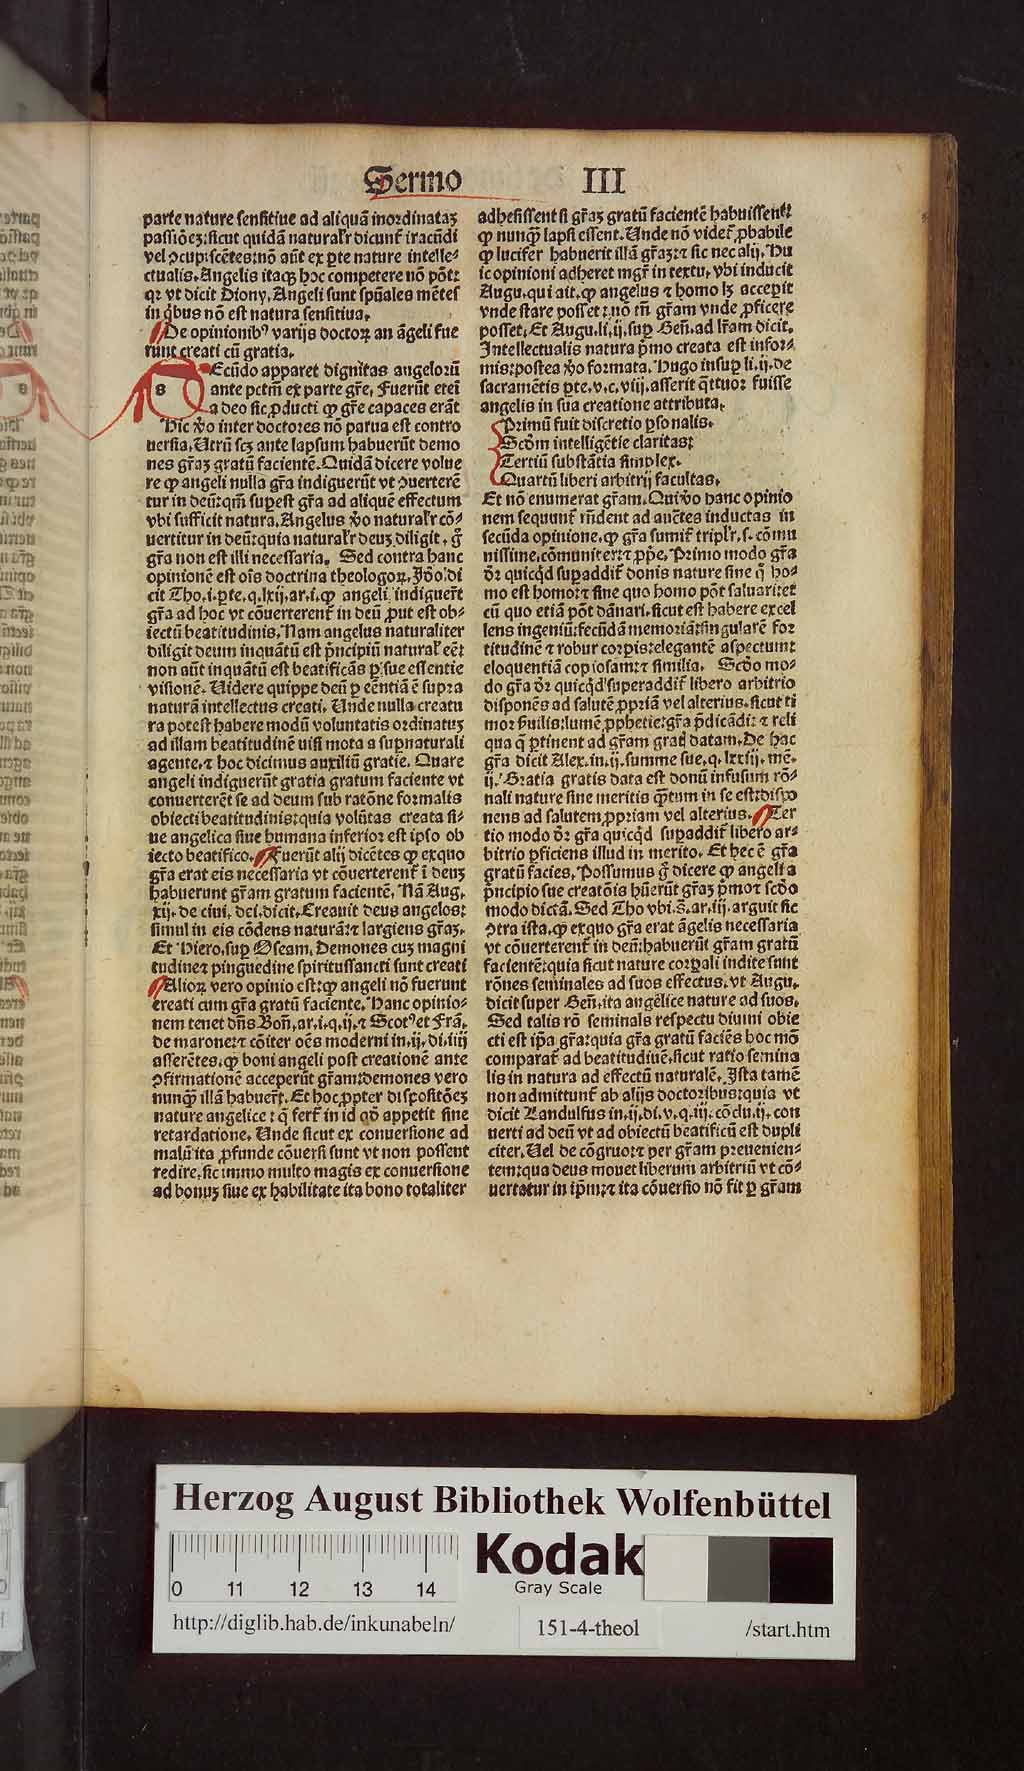 Sermo III
parte nature sensitiue ad aliquā inordinataꝫ
passiōeꝫ: sicut quidā naturalr̄ dicunt̄ iracūdi
vel ꝯcupiscētes: nō aūt ex ꝑte nature intelle⸗
ctualis. Angelis itaqꝫ hoc competere nō pōt:
qꝛ vt dicit Diony. Angeli sunt spūales mētes
in qͥbus nō est natura sensitiua.
De opinionibꝰ varijs doctoꝝ an āgeli fue
runt creati cū gratia.
sEcūdo apparet dignitas angeloꝛū
ante pctm̄ ex parte gr̄e. Fuerūt eteī
a deo sic ꝓducti ꝙ gr̄e capaces erāt
Hic ꝟo inter doctores nō parua est contro
uersia. Utrū scꝫ ante lapsum habuerūt demo
nes gr̄aꝫ gratū facientē. Quidā dicere volue
re ꝙ angeli nulla gr̄a indiguerūt vt ꝯuerterē
tur in deū: qm̄ suꝑest gr̄a ad aliquē effectum
vbi sufficit natura. Angelus ꝟo naturalr̄ cō⸗
uertitur in deū: quia naturalr̄ deuꝫ diligit. g̊
gr̄a non est illi necessaria. Sed contra hanc
opinionē est oīs doctrina theologoꝝ. Iꝺo di
cit Tho. i. ꝑte. q. lxij. ar. i. ꝙ angeli indiguer̄t
gr̄a ad hoc vt cōuerterent̄ in deū ꝓut est ob⸗
iectū beatitudinis. Nam angelus naturaliter
diligit deum inquātū est pͥncipiū natural̓ eē:
non aūt inquātū est beatificās ꝑ sue essentie
visionē. Uidere quippe deū ꝑ eēntiā ē supꝛa
naturā intellectus creati. Unde nulla creatu
ra potest habere modū voluntatis oꝛdinatuꝫ
ad illam beatitudinē nisi mota a suꝑnaturali
agente. ⁊ hoc dicimus auxiliū gratie. Quare
angeli indiguerūt gratia gratum faciente vt
conuerterēt se ad deum sub ratōne foꝛmalis
obiecti beatitudinis: quia volūtas creata si⸗
ue angelica siue humana inferioꝛ est ipso ob
iecto beatifico. Fuerūt alij dicētes ꝙ exquo
gr̄a erat eis necessaria vt cōuerterent̄ ī deuꝫ
habuerunt gr̄am gratum facientē. Nā Aug.
xij. de ciui. dei. dicit. Creauit deus angelos:
simul in eis cōdens naturā: ⁊ largiens gr̄aꝫ.
Et Hiero. suꝑ Oseam. Demones cuꝫ magni
tudine ⁊ pinguedine spiritussancti sunt creati
Alioꝝ vero opinio est: ꝙ angeli nō fuerunt
creati cum gr̄a gratū faciente. Hanc opinio⸗
nem tenet dn̄s Bon̄. ar. i. q. ij. ⁊ Scotꝰ et Frā.
de marone: ⁊ cōiter oēs moderni in. ij. di. iiij
asserētes. ꝙ boni angeli post creationē ante
ꝯfirmationē acceperūt gr̄am: demones vero
nunqͣꝫ illā habuer̄t. Et hoc ꝓpter dispositōeꝫ
nature angelice: q̄ fert̄ in id qͦd appetit sine
retardatione. Unde sicut ex conuersione ad
malū ita ꝓfunde cōuersi sunt vt non possent
redire. sic immo multo magis ex conuersione
ad bonuꝫ siue ex habilitate ita bono totaliter
adhesissent si gr̄aꝫ gratū facientē habuissent:
ꝙ nunqͣꝫ lapsi essent. Unde nō videt̄ ꝓbabile
ꝙ lucifer habuerit illā gr̄aꝫ: ⁊ sic nec alij. Hu
ic opinioni adheret mgr̄ in textu. vbi inducit
Augu. qui ait. ꝙ angelus ⁊ homo lꝫ acceperit
vnde stare posset: nō tn̄ gr̄am vnde ꝓficere
posset. Et Augu. li. ij. suꝑ Gen̄. ad lr̄am dicit.
Intellectualis natura pͥmo creata est infoꝛ⸗
mis: postea ꝟo foꝛmata. Hugo insuꝑ li. ij. de
sacramētis ꝑte. v. c. viij. asserit qͣttuoꝛ fuisse
angelis in sua creatione attributa.
Primū fuit discretio ꝑsonalis.
Scd̄m intelligētie claritas:
Tertiū substātia simplex.
Quartū liberi arbitrij facultas.
Et nō enumerat gr̄am. Qui ꝟo hanc opinio
nem sequunt̄ rn̄dent ad auctes inductas in
secūda opinione. ꝙ gr̄a sumit̄ triplr̄. s. cōmu
nissime. cōmuniter: ⁊ ꝓpͥe. Primo modo gr̄a
dr̄ quicqͥd suꝑaddit̄ donis nature sine qͣ ho⸗
mo est homo: ⁊ sine quo homo pōt saluari: et
cū quo etiā pōt dānari. sicut est habere excel
lens ingeniū: fecūdā memoriā: singularē foꝛ
titudinē ⁊ robur coꝛpis: elegantē aspectum:
eloquentiā copiosam: ⁊ similia. Scd̄o mo⸗
do gr̄a dr̄ quicqͥd superaddit̄ libero arbitrio
disponēs ad salutē ꝓpriā vel alterius. sicut ti
moꝛ ẜuilis: lumē ꝓphetie: gr̄a pͥdicādi: ⁊ reli
qua q̄ ꝑtinent ad gr̄am gratꝭ datam. De hac
gr̄a dicit Alex. in. ij. summe sue. q. lxxiij. mē.
ij. Gratia gratis data est donū infusum rō⸗
nali nature sine meritis qͣꝫtum in se est: dispo
nens ad salutem ꝓpriam vel alterius. Ter
tio modo dr̄ gr̄a quicqͥd suꝑaddit̄ libero ar⸗
bitrio ꝑficiens illud in merito. Et hec ē gr̄a
gratū faciēs. Possumus g̊ dicere ꝙ angeli a
pͥncipio sue creatōnis hūerūt gr̄aꝫ pͥmo ⁊ scd̄o
modo dictā. Sed Tho vbi. s̄. ar. iij. arguit sic
ꝯtra ista. ꝙ exquo gr̄a erat āgelis necessaria
vt cōuerterent̄ in deū: habuerūt gr̄am gratū
facientē: quia sicut nature coꝛꝑali indite sunt
rōnes seminales ad suos effectus. vt Augu.
dicit super Gen̄. ita angelice nature ad suos.
Sed talis rō seminalis respectu diuini obie
cti est ip̄a gr̄a: quia gr̄a gratū faciēs hoc mō
comparat̄ ad beatitudinē. sicut ratio semina
lis in natura ad effectū naturalē. Ista tamē
non admittunt̄ ab alijs doctoꝛibus: quia vt
dicit Landulfus in. ij. di. v. q. iij. cōclu. ij. con
uerti ad deū vt ad obiectū beatificū est dupli
citer. Uel de cōgruo: ⁊ per gr̄am preuenien⸗
tem: qua deus mouet liberum arbitriū vt cō⸗
uertatur in ip̄m: ⁊ ita cōuersio nō fit ꝑ gr̄am
Herzog August Bibliothek Wolfenbüttel
Kodak
Gray Scale
0 11 12 13 14
http://diglib.hab.de/inkunabeln/ 151-4-theol /start.htm